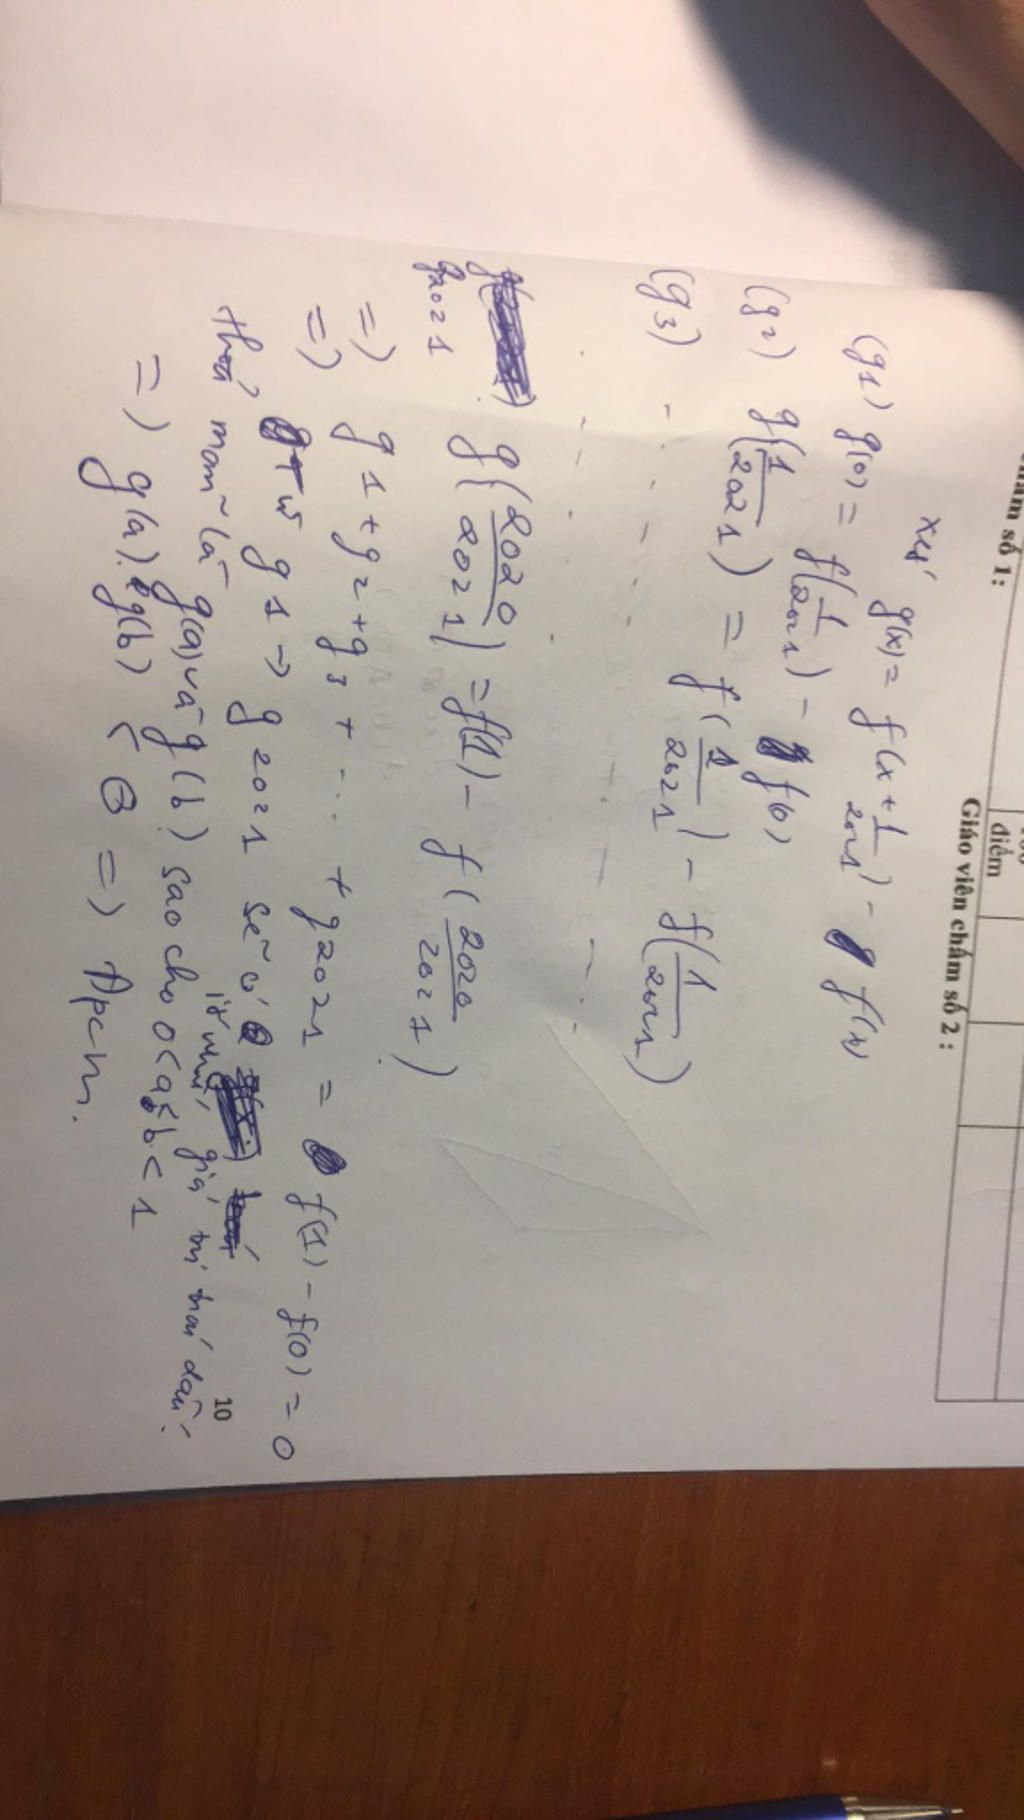 chấm số 1:
điểm
Giáo viên chấm số 2 :
xét g(x) = f(x + 1/2021) - f(x)
(g1) g(0) = f(1/2021) - f(0)
(g2) g(1/2021) = f(2/2021) - f(1/2021)
(g3)
g2021 g(2020/2021) = f(1) - f(2020/2021)
=) g1 + g2 + g3 + ... + g2021 = f(1) - f(0) = 0
=) từ g1 -> g2021 sẽ có ít nhất giá trị trái dấu
thoả mãn là g(a) và g(b) sao cho 0 < a < b < 1
=) g(a). g(b) < 0 =) Đpcm.
10